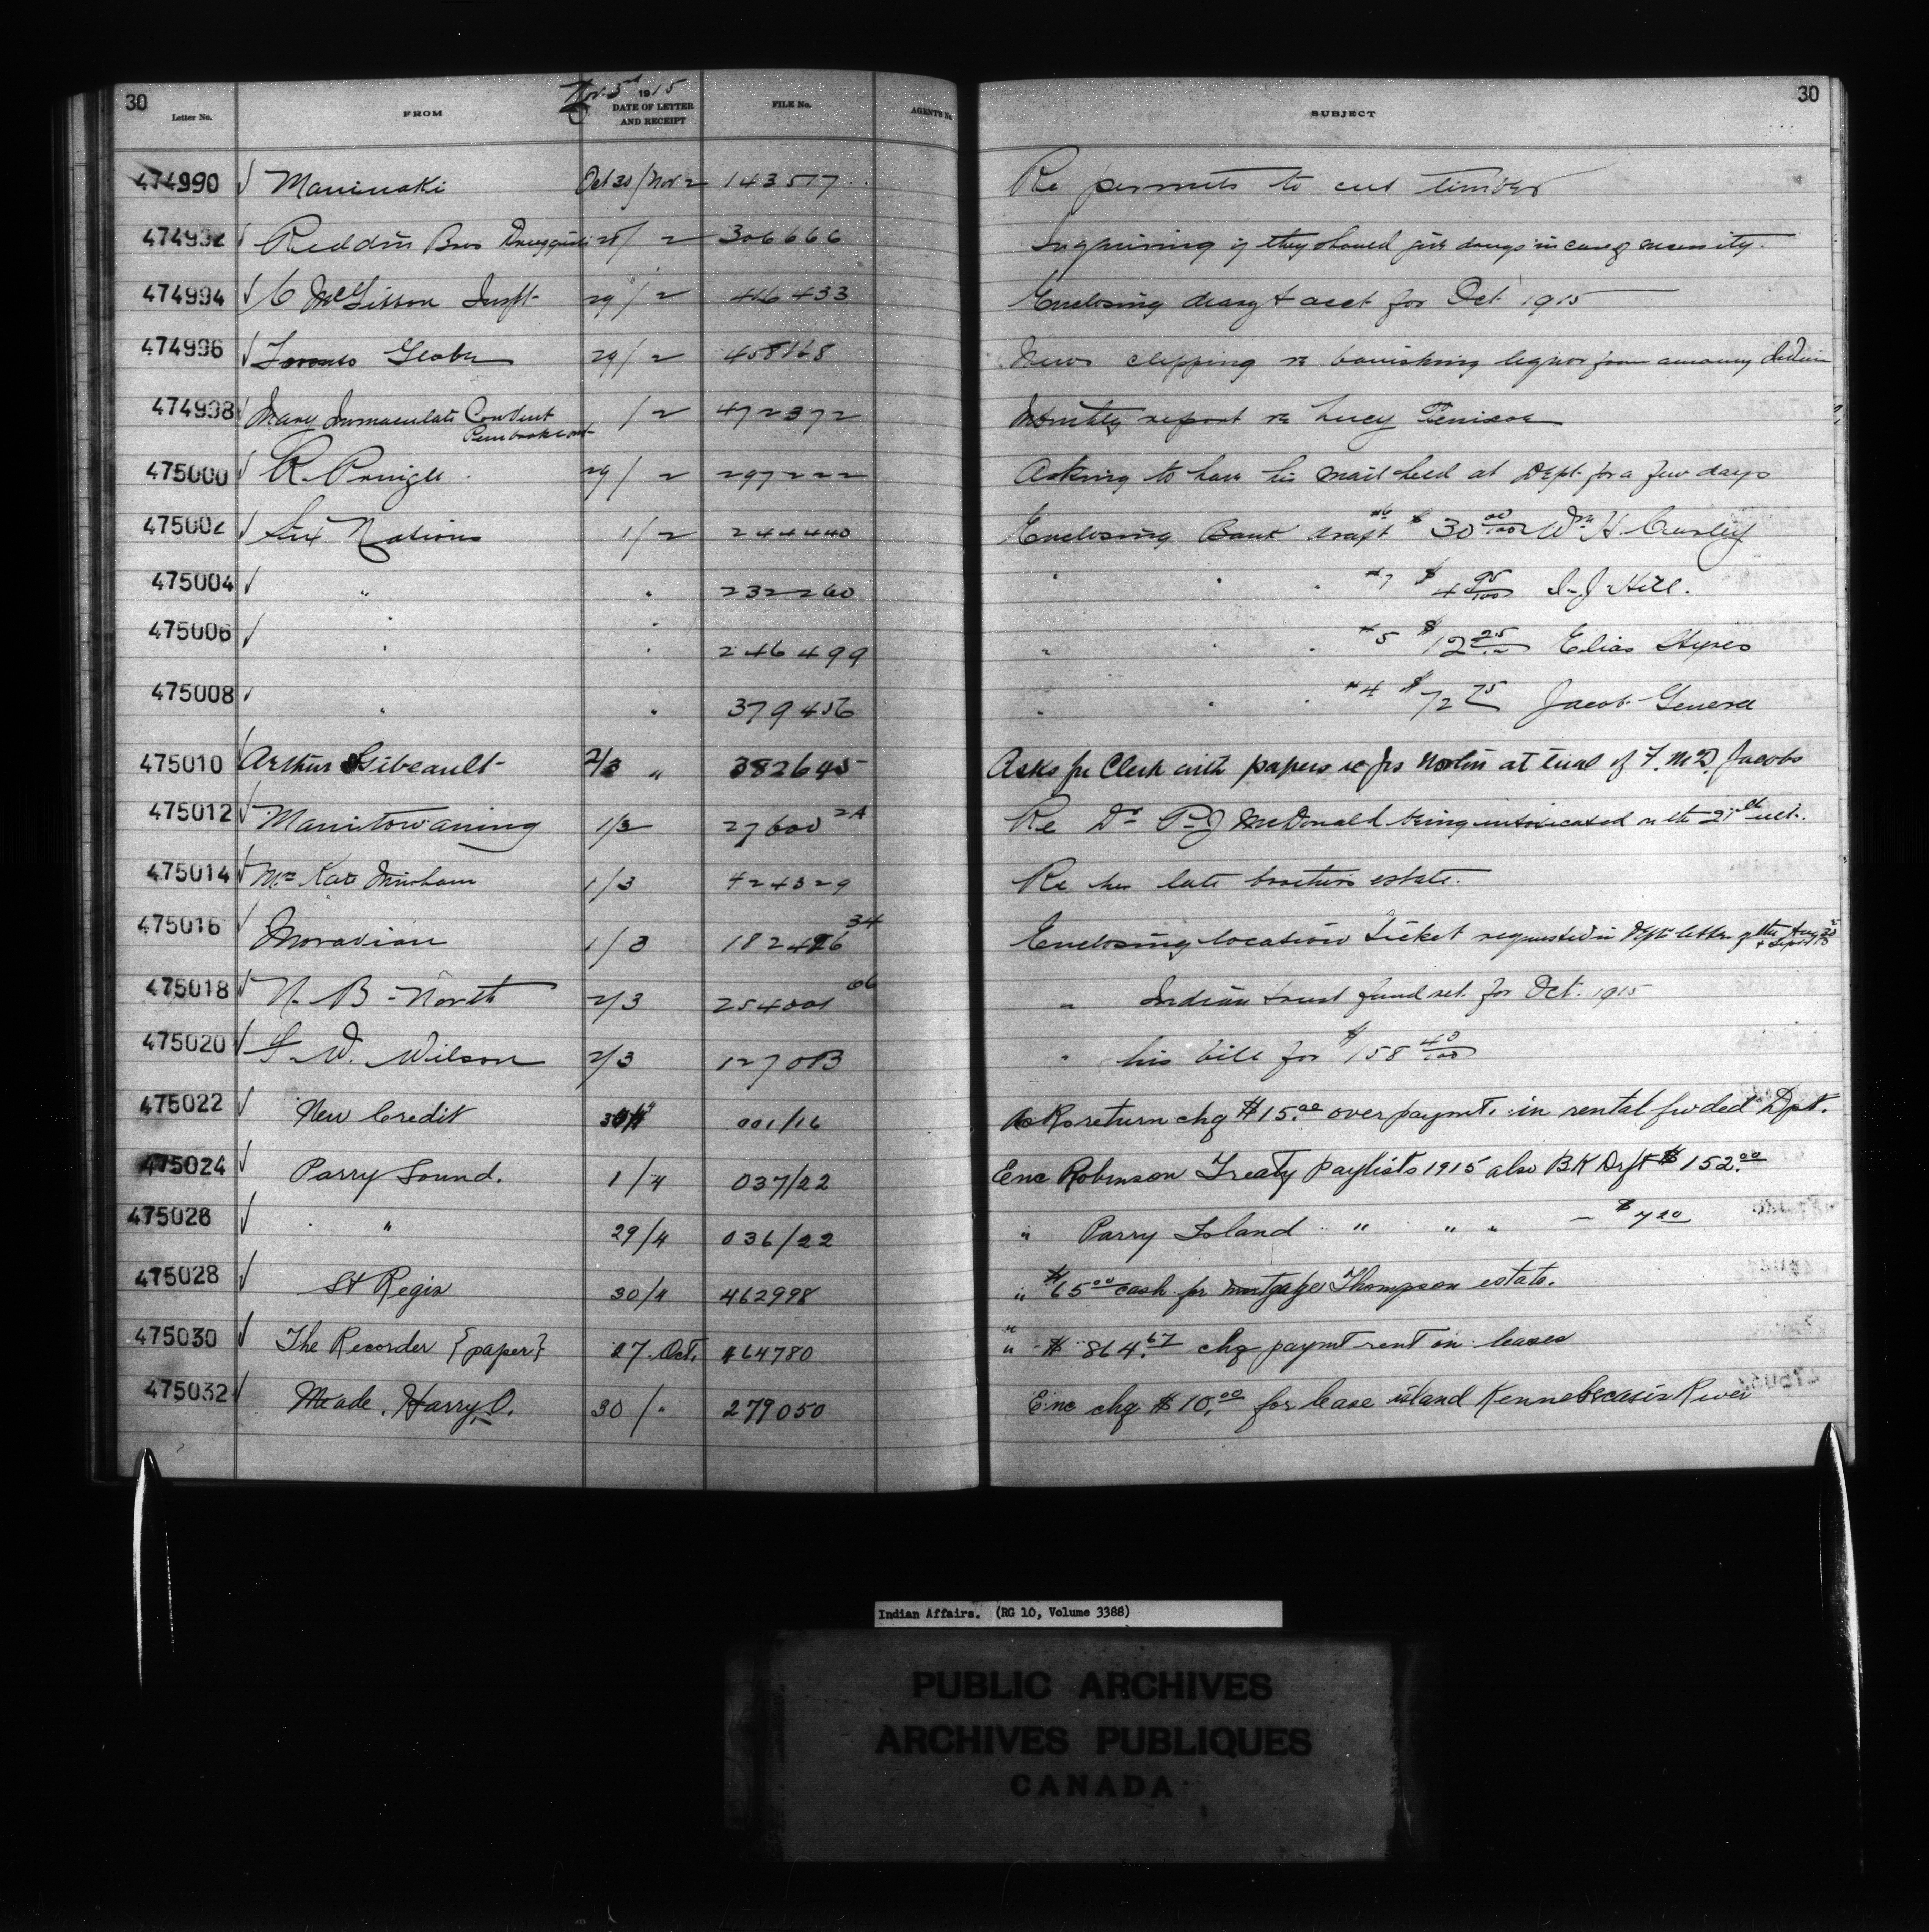 30
Nov. 3rd 1915
Letter No. FROM DATE OF LETTER AND RECEIPT FILE No. AGENT'S No. SUBJECT
30
474990 √ Maniwaki Oct 30/Nov 2 143517 Re permits to cut timber
474992 √ Reddin Bros Druggists 28/2 306666 Inquiring if they should give drugs in case of necessity.
474994 √ C McGibbon Inspt- 29/2 416433 Enclosing diary & acct for Oct 1915
474996 √ Toronto Globe 29/2 458168 News clipping re banishing liquor from among Indian
474998 √ Mary Immaculate Convent Pembroke Ont- /2 472372 Monthly report re Lucy
475000 √ R. Pringle 29/2 297222 Asking to have his mail held at Dept. for a few days
475002 √ Six Nations 1/2 244440 Enclosing Bank draft #6 $30 00/100 Wm H.
475004 √ " " 232260 " " " #7 $4 95/100 J. Hill.
475006 √ " " 246499 " " " #5 $12 25 Elias Styres
475008 √ " " 379456 " " " #4 $72 75 Jacob General
475010 √ Arthur Gibeault- 2/3 " 382645 Asks for Clerk with papers re Jos Nolin at trial of F. McD. Jacobs
475012 √ Manitowaning 1/3 27600 2A Re Dr P J McDonald being intoxicated on the ult.
475014 √ Mrs Kate 1/3 424329 Re her late brother's estate.
475016 √ Moravian 1/3 182426 34 Enclosing location Ticket requested in Dept's letter of the Aug & Sept
475018 √ N. B - North 2/3 254001 66 " Indian trust fund ret. for Oct. 1915
475020 √ W. Wilson 2/3 127013 " his bill for $158 40/100
475022 √ New Credit 001/16 return chq $15.00 over paymt. in rental fwded Dpt.
475024 √ Parry Sound. 1/4 037/22 Enc Robinson Treaty Paylists 1915 also BK Drft $152.00
475026 √ " 29/4 036/22 " Parry Island " " " - $7
475028 √ St Regis 30/4 462998 " $65 00 cash for mortgage Thompson estate.
475030 √ The Recorder {paper} 27 Oct. 464780 " $864.67 chq paymt rent on leases
475032 √ Meade, Harry O. 30/" 279050 Enc chq $10.00 for lease island Kennebecasis River
Indian Affairs. (RG 10, Volume 3388)
PUBLIC ARCHIVES
ARCHIVES PUBLIQUES
CANADA